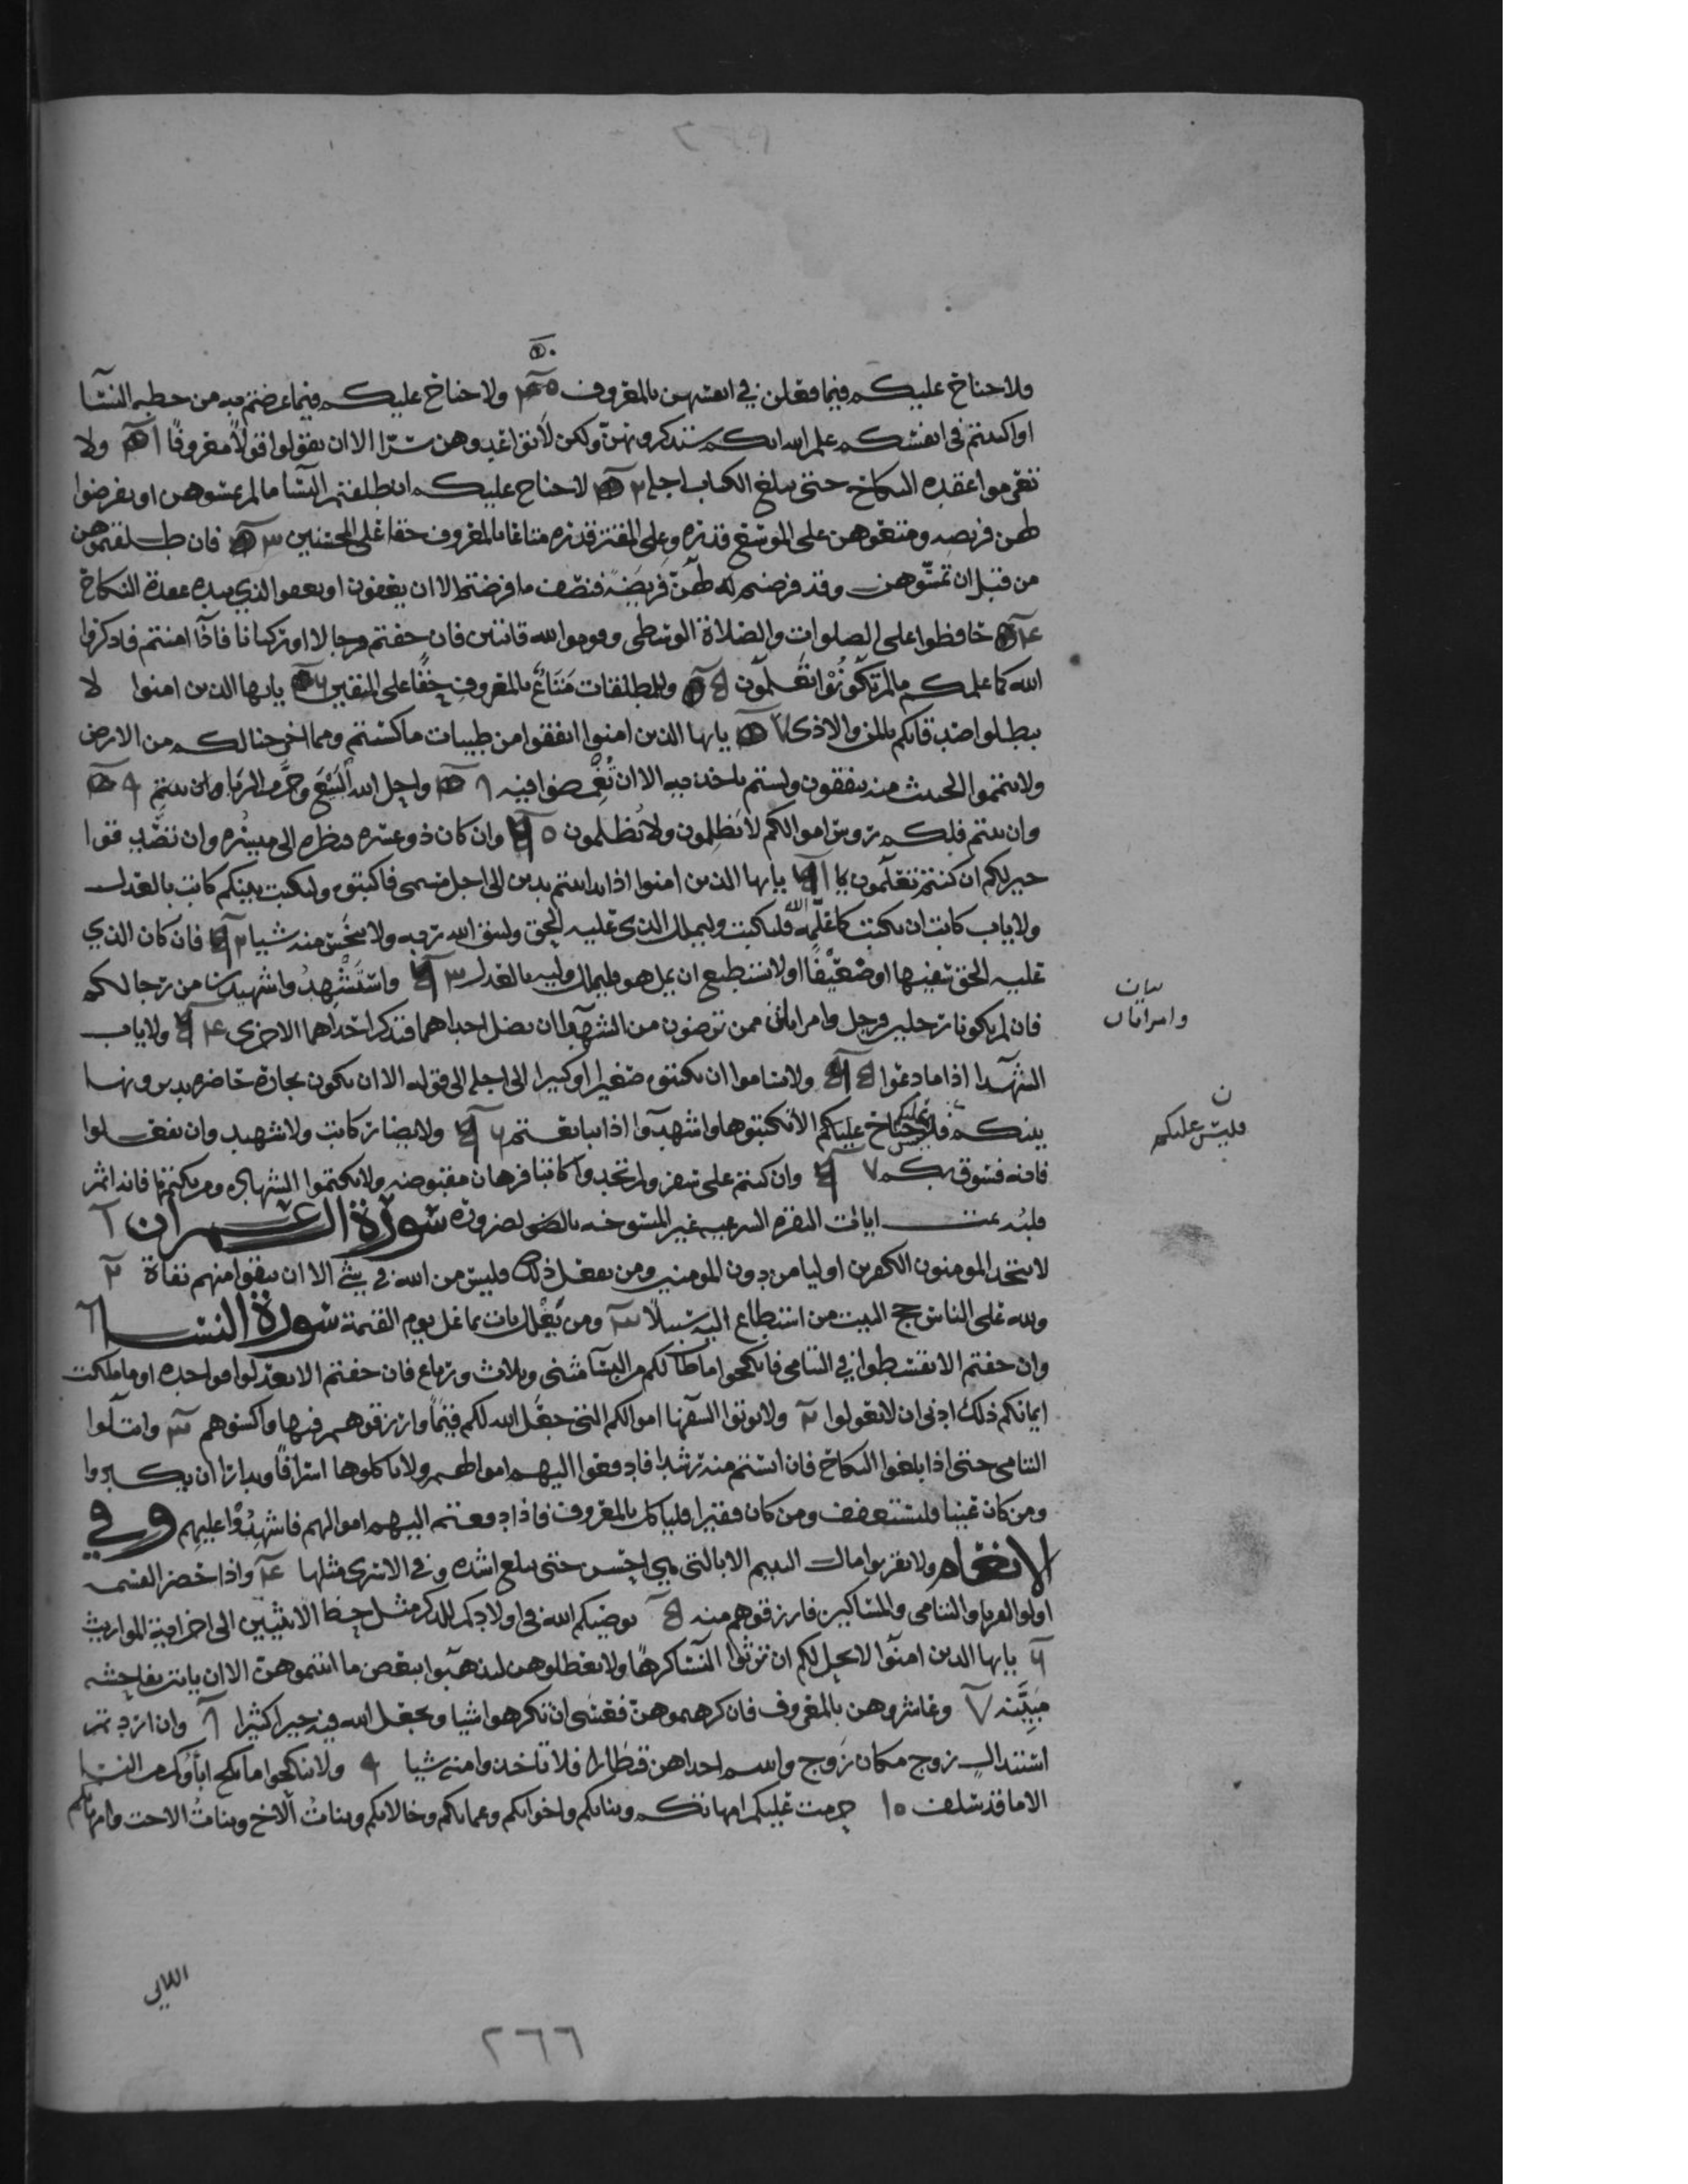 فلا جناح عليكم فيما فعلن في انفسهن بالمعروف ٥٠ ولا جناح عليكم فيما عرضتم به من خطبه النسا
او اكننتم في انفسكم علم الله انكم ستذكرونهن ولكن لا تواعدوهن سرا الا ان تقولوا قولا معروفا ٥١ ولا
تعزموا عقده النكاح حتى يبلغ الكتاب اجله ٥٢ لا جناح عليكم ان طلقتم النسا ما لم تمسوهن او تفرضوا
لهن فريضه ومتعوهن على الموسع قدره وعلى المقتر قدره متاعا بالمعروف حقا على المحسنين ٥٣ فان طلقتموهن
من قبل ان تمسوهن وقد فرضتم لهن فريضة فنصف ما فرضتم الا ان يعفون او يعفو الذي بيده عقدة النكاح
٥٤ حافظوا على الصلوات والصلاة الوسطى وقوموا لله قانتين فان خفتم فرجالا او ركبانا فاذا امنتم فاذكروا
الله كما علمكم ما لم تكونوا تعلمون ٥٥ وللمطلقات متاع بالمعروف حقا على المتقين ٥٦ يايها الذين امنوا لا
تبطلوا صدقاتكم بالمن والاذى ٥٧ يايها الذين امنوا انفقوا من طيبات ما كسبتم ومما اخرجنا لكم من الارض
ولا تيمموا الخبيث منه تنفقون ولستم باخذيه الا ان تغمضوا فيه ٥٨ واحل الله البيع وحرم الربا وان تبتم ٥٩
وان تبتم فلكم روس اموالكم لا تظلمون ولا تظلمون ٦٠ وان كان ذو عسره فنظره الى ميسره وان تصدقوا
خير لكم ان كنتم تعلمون ٦١ يايها الذين امنوا اذا تداينتم بدين الى اجل مسمى فاكتبوه وليكتب بينكم كاتب بالعدل
ولا ياب كاتب ان يكتب كما علمه الله فليكتب وليملل الذي عليه الحق وليتق الله ربه ولا يبخس منه شيا ٦٢ فان كان الذي
عليه الحق سفيها او ضعيفا او لا يستطيع ان يمل هو فليملل وليه بالعدل ٦٣ واستشهدوا شهيدين من رجالكم
فان لم يكونا رجلين فرجل وامراتان ممن ترضون من الشهدا ان تضل احداهما فتذكر احداهما الاخرى ٦٤ ولا ياب
الشهدا اذا ما دعوا ٦٥ ولا تساموا ان تكتبوه صغيرا او كبيرا الى اجله الى قوله الا ان تكون تجارة حاضره تديرونها
بينكم فليس عليكم جناح الا تكتبوها واشهدوا اذا تبايعتم ٦٦ ولا يضار كاتب ولا شهيد وان تفعلوا
فانه فسوق بكم ٦٧ وان كنتم على سفر ولم تجدوا كاتبا فرهان مقبوضه ولا تكتموا الشهاده ومن يكتمها فانه اثم
قلبه تمت ايات البقره الشرعيه غير المنسوخه سورة ال عمران ١
لا يتخذ المومنون الكفرين اوليا من دون المومنين ومن يفعل ذلك فليس من الله في شي الا ان تتقوا منهم تقاة ٢
ولله على الناس حج البيت من استطاع اليه سبيلا ٣ ومن يغلل يات بما غل يوم القيمة سورة النسا ١
وان خفتم الا تقسطوا في اليتامى فانكحوا ما طاب لكم من النسا مثنى وثلاث ورباع فان خفتم الا تعدلوا فواحده او ما ملكت
ايمانكم ذلك ادنى ان لا تعولوا ٢ ولا توتوا السفها اموالكم التي جعل الله لكم قيما وارزقوهم فيها واكسوهم ٣ وابتلوا
اليتامى حتى اذا بلغوا النكاح فان انستم منهم رشدا فادفعوا اليهم اموالهم ولا تاكلوها اسرافا وبدارا ان يكبروا
ومن كان غنيا فليستعفف ومن كان فقيرا فلياكل بالمعروف فاذا دفعتم اليهم اموالهم فاشهدوا عليهم وفي
الانعام ولا تقربوا مال اليتيم الا بالتي هي احسن حتى يبلغ اشده وفي الاسرى مثلها ٤ واذا حضر القسمه
اولوا القربا واليتامى والمساكين فارزقوهم منه ٥ يوصيكم الله في اولادكم للذكر مثل حظ الانثيين الى اخر اية المواريث
٦ يايها الذين امنوا لا يحل لكم ان ترثوا النسا كرها ولا تعضلوهن لتذهبوا ببعض ما اتيتموهن الا ان ياتين بفاحشه
مبينه ٧ وعاشروهن بالمعروف فان كرهتموهن فعسى ان تكرهوا شيا ويجعل الله فيه خيرا كثيرا ٨ وان اردتم
استبدال زوج مكان زوج واتيتم احداهن قنطارا فلا تاخذوا منه شيا ٩ ولا تنكحوا ما نكح اباوكم من النسا
الا ما قد سلف ١٠ حرمت عليكم امهاتكم وبناتكم واخواتكم وعماتكم وخالاتكم وبنات الاخ وبنات الاخت وامهاتكم
بيان
وامراتان
ن
فليس عليكم
اللاتي
٢٦٦